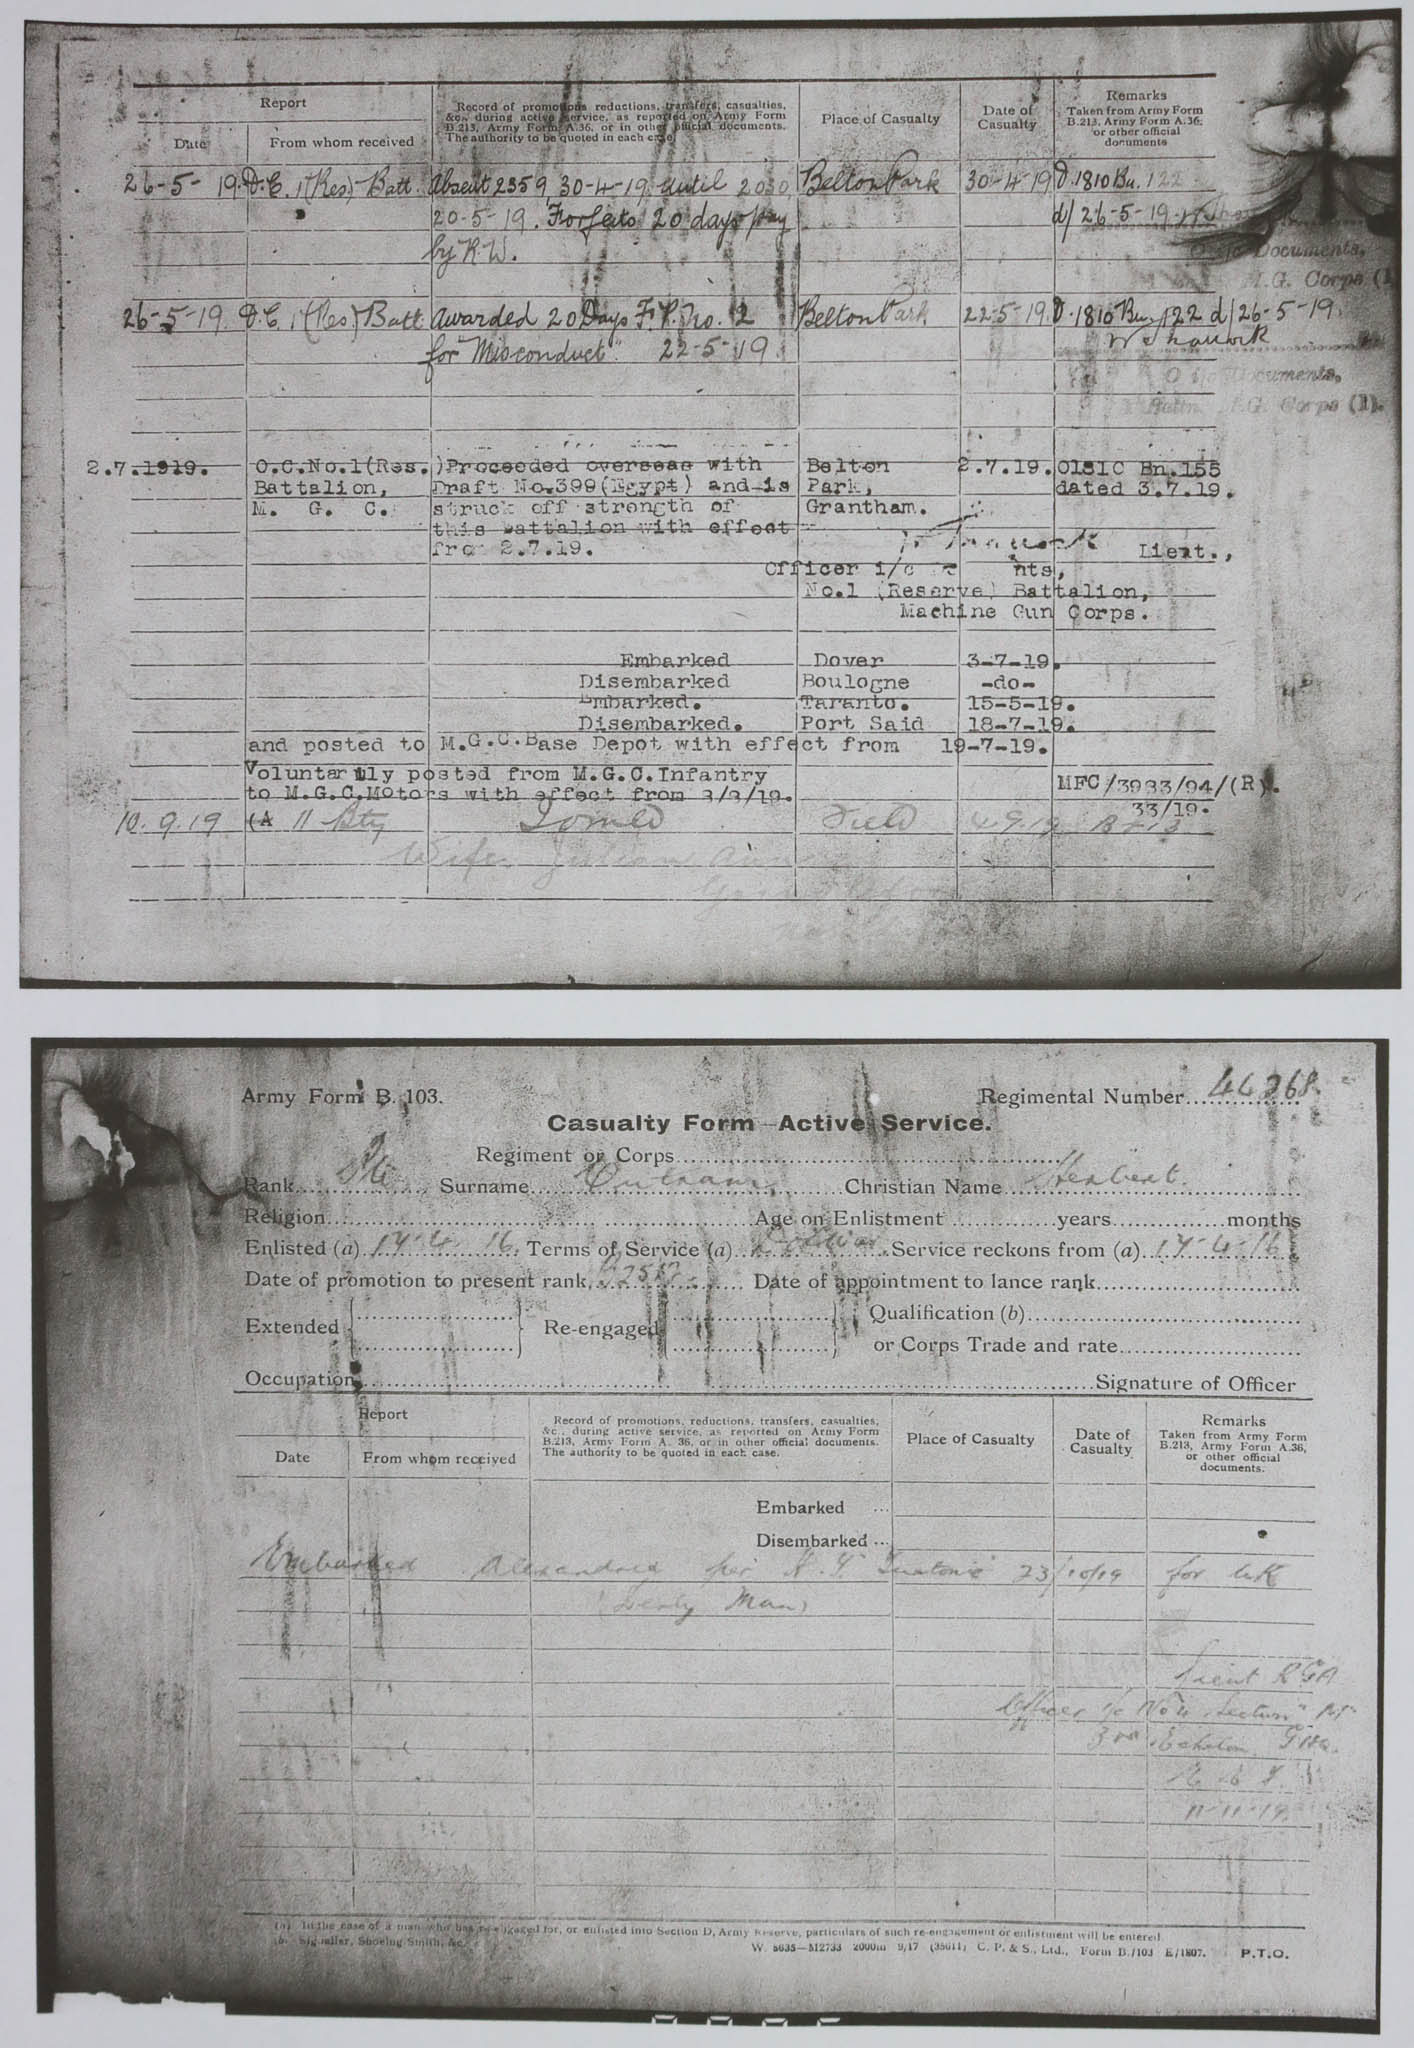 Report
Record of promotions reductions, transfers, casualties,
&c., during active service, as reported on Army Form
B.213, Army Form A.36, or in other official documents.
The authority to be quoted in each case.
Place of Casualty
Date of
Casualty
Remarks
Taken from Army Form
B.213, Army Form A.36,
or other official
documents
Date
From whom received
26-5-19. O.C. 1(Res) Batt. Absent 2359, 30-4-19 until 2030, Belton Park 30-4-19 O.1810 Bn. 122
20-5-19. Forfeits 20 days pay d/ 26-5-19.
by R.W.
O i/c Documents,
M.G. Corps (I
26-5-19. O.C. 1(Res) Batt. Awarded 20 Days F.P. No. 2 Belton Park 22-5-19. O.1810 Bn. 122 d/26-5-19.
for "Misconduct" 22-5-19
O i/c Documents,
Battn. M.G. Corps (I).
2.7.1919. O.C.No.1(Res.)Proceeded overseas with Belton 2.7.19. O1810 Bn.155
Battalion, Draft No.399(Egypt) and is Park, dated 3.7.19.
M. G. C. struck off strength of Grantham.
this Battalion with effect
from 2.7.19.
Lieut.,
Officer i/c
No.1 (Reserve) Battalion,
Machine Gun Corps.
Embarked Dover 3-7-19.
Disembarked Boulogne -do-
Embarked. Taranto. 15-5-19.
Disembarked. Port Said 18-7-19.
and posted to M.G.C.Base Depot with effect from 19-7-19.
Voluntarily posted from M.G.C.Infantry MFC/3983/94/(R).
to M.G.C.Motors with effect from 3/8/19. 33/19.
10.9.19 11 Bty Joined Field 4.9.19 B213
Wife
Army Form B. 103.
Regimental Number 44368
Casualty Form—Active Service.
Regiment or Corps
Rank Pte Surname Outram Christian Name Herbert
Religion Age on Enlistment years months
Enlisted (a) 17-4-16. Terms of Service (a) Service reckons from (a) 17-4-16
Date of promotion to present rank Date of appointment to lance rank
Extended Re-engaged Qualification (b)
or Corps Trade and rate
Occupation Signature of Officer
Report
Record of promotions, reductions, transfers, casualties,
&c., during active service, as reported on Army Form
B.213, Army Form A. 36, or in other official documents.
The authority to be quoted in each case.
Place of Casualty
Date of
Casualty
Remarks
Taken from Army Form
B.213, Army Form A.36,
or other official
documents.
Date
From whom received
Embarked ...
Disembarked ...
Embarked Alexandria per H.T. Teutonic 23/10/19 for UK
Lieut RGA
Officer i/c No 11 Section
3rd Echelon GHQ.
E.E.F.
11-11-19.
(a) In the case of a man who has re-engaged for, or enlisted into Section D, Army Reserve, particulars of such re-engagement or enlistment will be entered.
(b) Signaller, Shoeing Smith, &c.
W 5635—M2733 2000m 9/17 (35611) C. P. & S., Ltd., Form B./103 E/1807.
P.T.O.